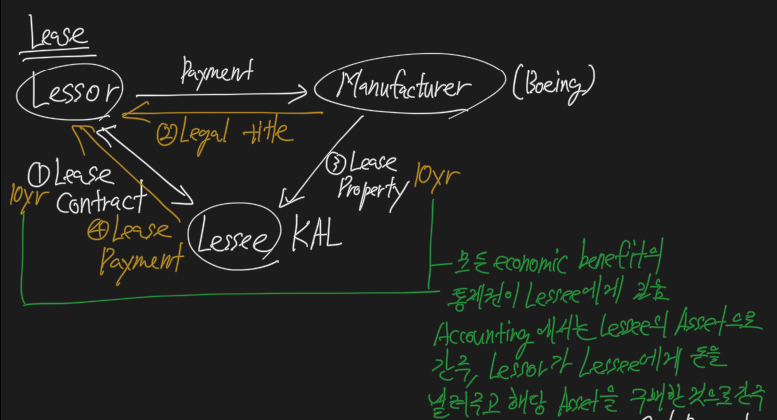 Lease
Lessor
Payment
Manufacturer
(Boeing)
②Legal title
①Lease
Contract
10yr
③Lease
Property
10yr
④Lease
Payment
Lessee
KAL
모든 economic benefit의
통제권이 Lessee에게 있음
Accounting에서는 Lessee의 Asset으로
간주, Lessor가 Lessee에게 돈을
빌려주고 해당 Asset을 구매한 것으로 간주